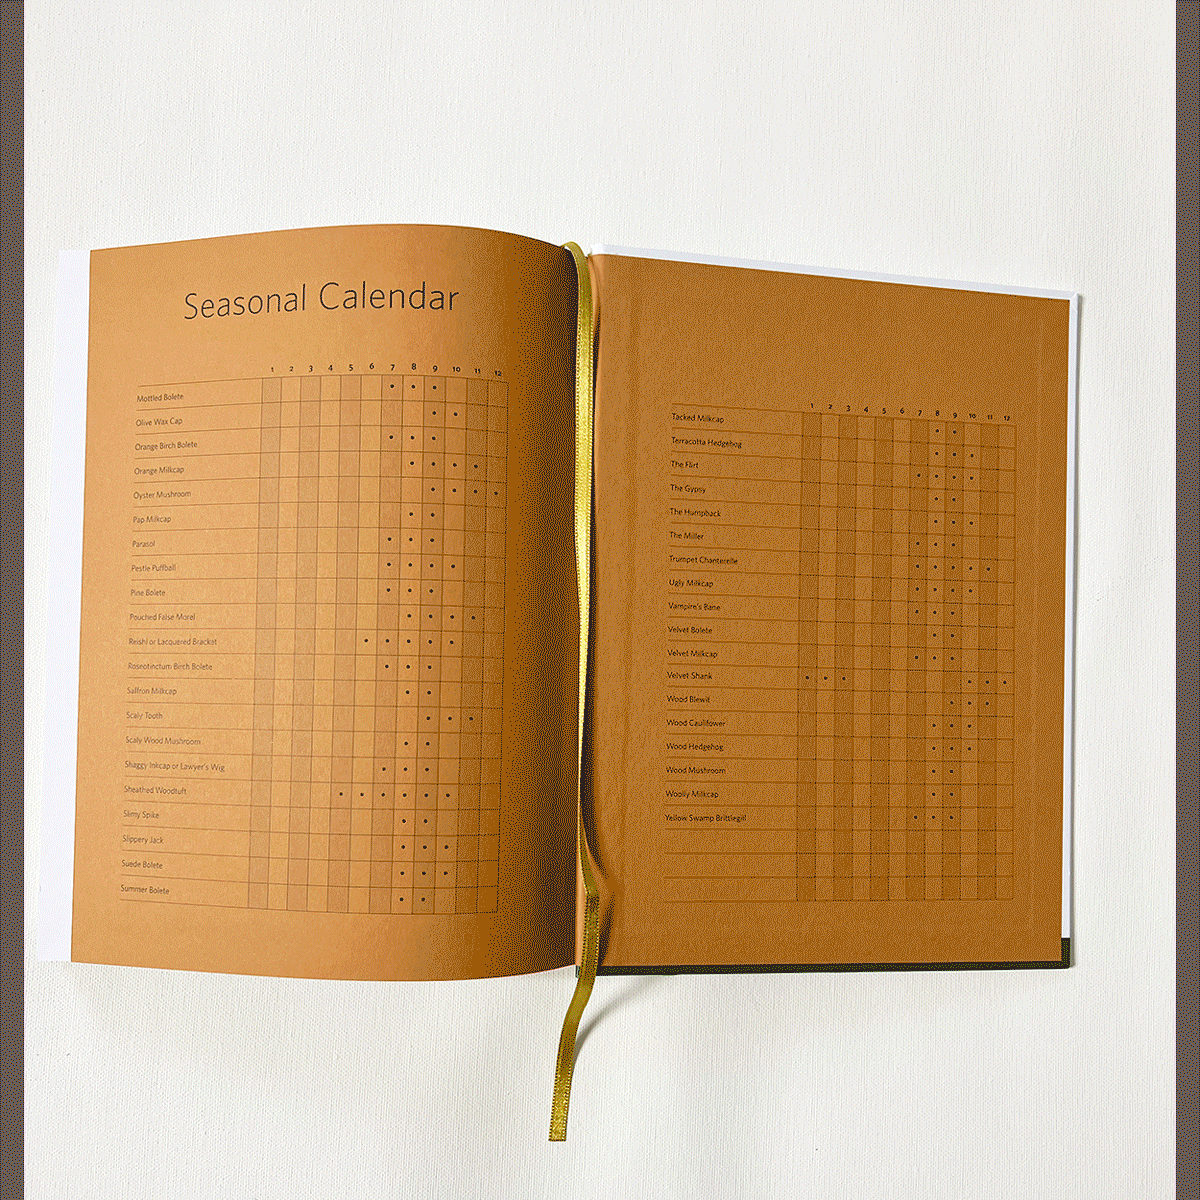 Seasonal Calendar
1 2 3 4 5 6 7 8 9 10 11 12
Mottled Bolete
Olive Wax Cap
Orange Birch Bolete
Orange Milkcap
Oyster Mushroom
Pap Milkcap
Parasol
Pestle Puffball
Pine Bolete
Pouched False Morel
Reishi or Lacquered Bracket
Roseotinctum Birch Bolete
Saffron Milkcap
Scaly Tooth
Scaly Wood Mushroom
Shaggy Inkcap or Lawyer's Wig
Sheathed Woodtuft
Slimy Spike
Slippery Jack
Suede Bolete
Summer Bolete
1 2 3 4 5 6 7 8 9 10 11 12
Tacked Milkcap
Terracotta Hedgehog
The Flirt
The Gypsy
The Humpback
The Miller
Trumpet Chanterelle
Ugly Milkcap
Vampire's Bane
Velvet Bolete
Velvet Milkcap
Velvet Shank
Wood Blewit
Wood Cauliflower
Wood Hedgehog
Wood Mushroom
Woolly Milkcap
Yellow Swamp Brittlegill